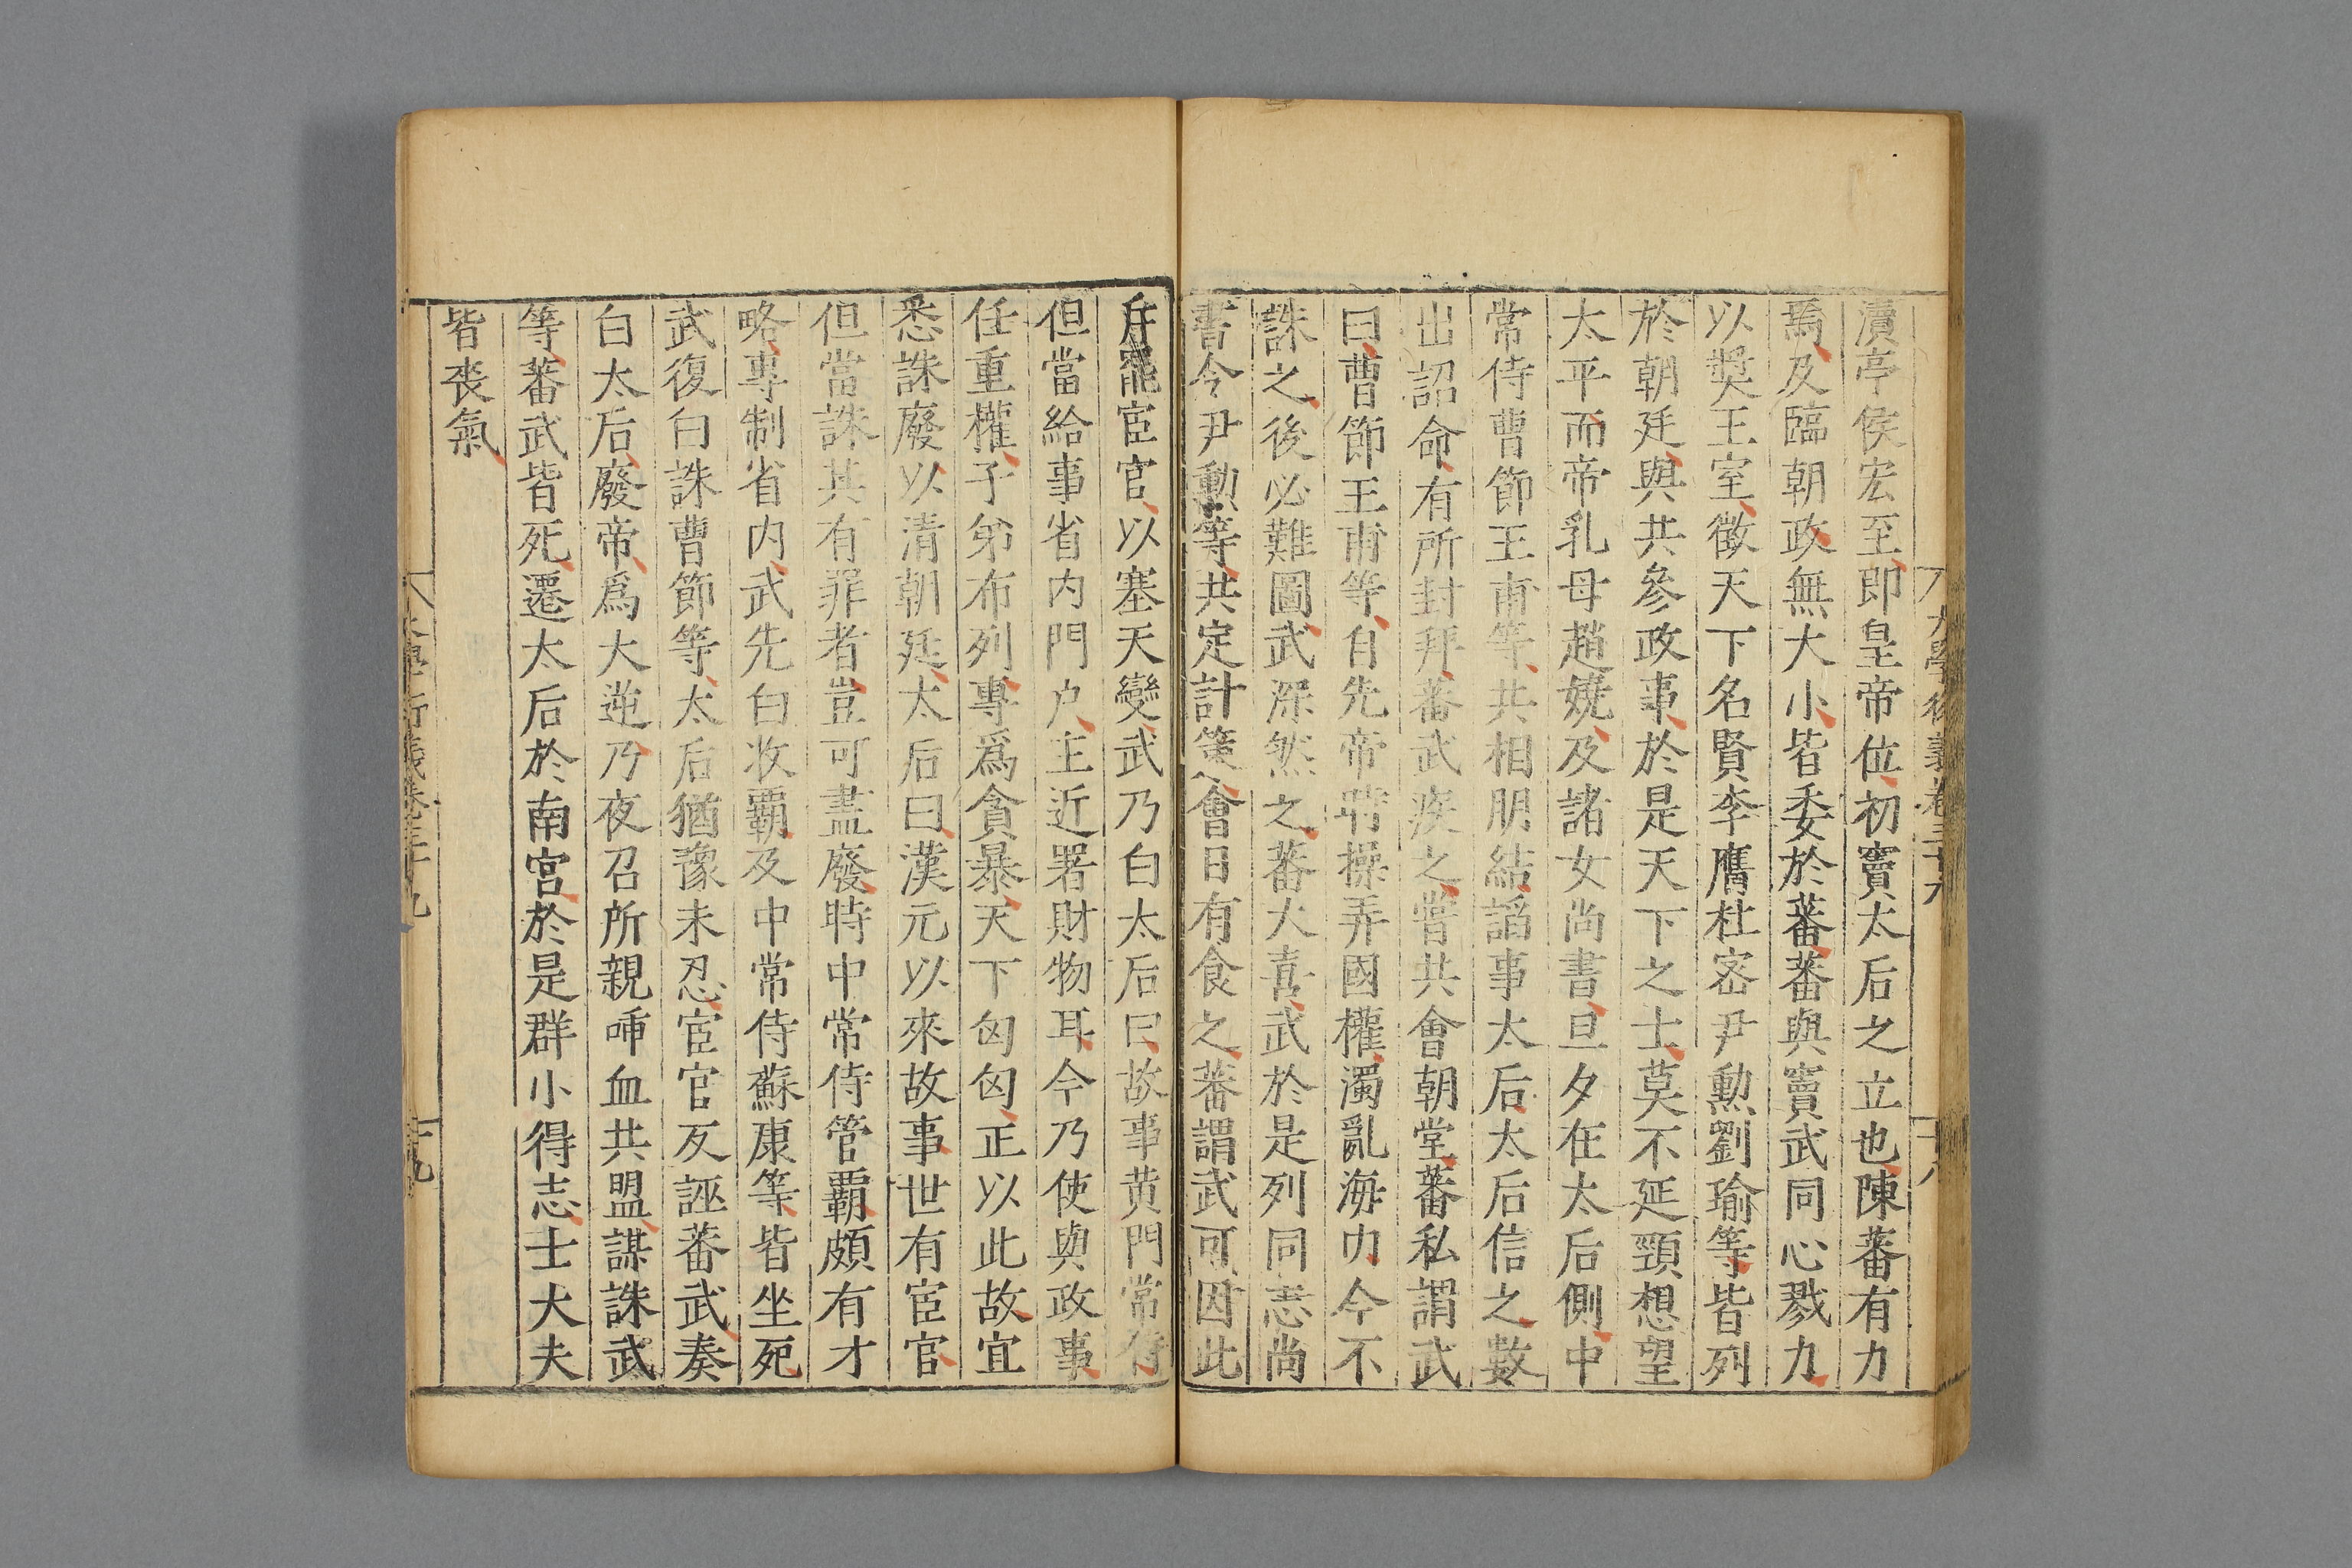 瀆亭侯宏至即皇帝位初竇太后之立也陳蕃有力
焉及臨朝政無大小皆委於蕃蕃與竇武同心戮力
以奬王室徵天下名賢李膺杜宻尹勲劉瑜等皆列
於朝廷與共參政事於是天下之士莫不延頸想望
太平而帝乳母趙嬈及諸女尚書旦夕在太后側中
常侍曹節王甫等共相朋結謟事太后太后信之數
出詔命有所封拜蕃武疾之嘗共會朝堂蕃私謂武
曰曹節王甫等自先帝時操弄國權濁亂海内今不
誅之後必難圖武深然之蕃大喜武於是列同志尚
書令尹勲等共定計策會日有食之蕃謂武可因此
斥罷宦官以塞天變武乃白太后曰故事黄門常侍
但當給事省内門户主近署財物耳今乃使與政事
任重權子弟布列專爲貪暴天下匈匈正以此故宜
悉誅廢以清朝廷太后曰漢元以來故事世有宦官
但當誅其有罪者豈可盡廢時中常侍管霸頗有才
略專制省内武先白收霸及中常侍蘇康等皆坐死
武復白誅曹節等太后猶豫未忍宦官反誣蕃武奏
白太后廢帝爲大逆乃夜召所親唖血共盟謀誅武
等蕃武皆死遷太后於南宫於是群小得志士大夫
皆喪氣